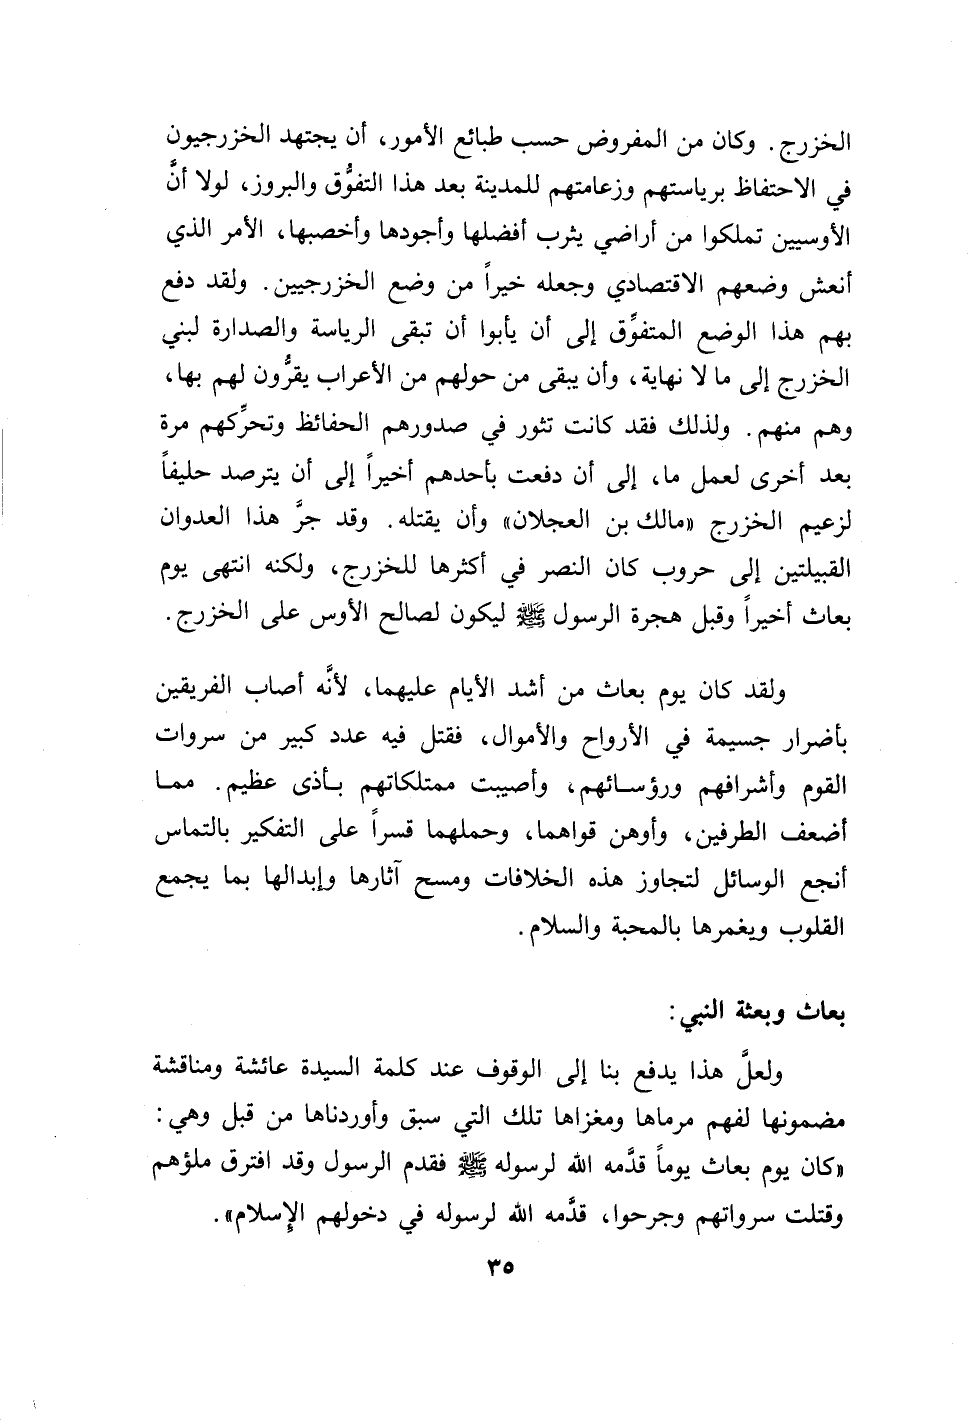 الخزرج. وكان من المفروض حسب طبائع الأمور، أن يجتهد الخزرجيون
في الاحتفاظ برياستهم وزعامتهم للمدينة بعد هذا التفوُّق والبروز، لولا أنَّ
الأوسيين تملكوا من أراضي يثرب أفضلها وأجودها وأخصبها، الأمر الذي
أنعش وضعهم الاقتصادي وجعله خيراً من وضع الخزرجيين. ولقد دفع
بهم هذا الوضع المتفوِّق إلى أن يأبوا أن تبقى الرياسة والصدارة لبني
الخزرج إلى ما لا نهاية، وأن يبقى من حولهم من الأعراب يقرُّون لهم بها،
وهم منهم. ولذلك فقد كانت تثور في صدورهم الحفائظ وتحرِّكهم مرة
بعد أخرى لعمل ما، إلى أن دفعت بأحدهم أخيراً إلى أن يترصد حليفاً
لزعيم الخزرج «مالك بن العجلان» وأن يقتله. وقد جرَّ هذا العدوان
القبيلتين إلى حروب كان النصر في أكثرها للخزرج، ولكنه انتهى يوم
بعاث أخيراً وقبل هجرة الرسول ﷺ ليكون لصالح الأوس على الخزرج.
ولقد كان يوم بعاث من أشد الأيام عليهما، لأنَّه أصاب الفريقين
بأضرار جسيمة في الأرواح والأموال، فقتل فيه عدد كبير من سروات
القوم وأشرافهم ورؤسائهم، وأصيبت ممتلكاتهم بأذى عظيم. مما
أضعف الطرفين، وأوهن قواهما، وحملهما قسراً على التفكير بالتماس
أنجع الوسائل لتجاوز هذه الخلافات ومسح آثارها وإبدالها بما يجمع
القلوب ويغمرها بالمحبة والسلام.
بعاث وبعثة النبي:
ولعلَّ هذا يدفع بنا إلى الوقوف عند كلمة السيدة عائشة ومناقشة
مضمونها لفهم مرماها ومغزاها تلك التي سبق وأوردناها من قبل وهي:
«كان يوم بعاث يوماً قدَّمه الله لرسوله ﷺ فقدم الرسول وقد افترق ملؤهم
وقتلت سرواتهم وجرحوا، قدَّمه الله لرسوله في دخولهم الإسلام».
٣٥